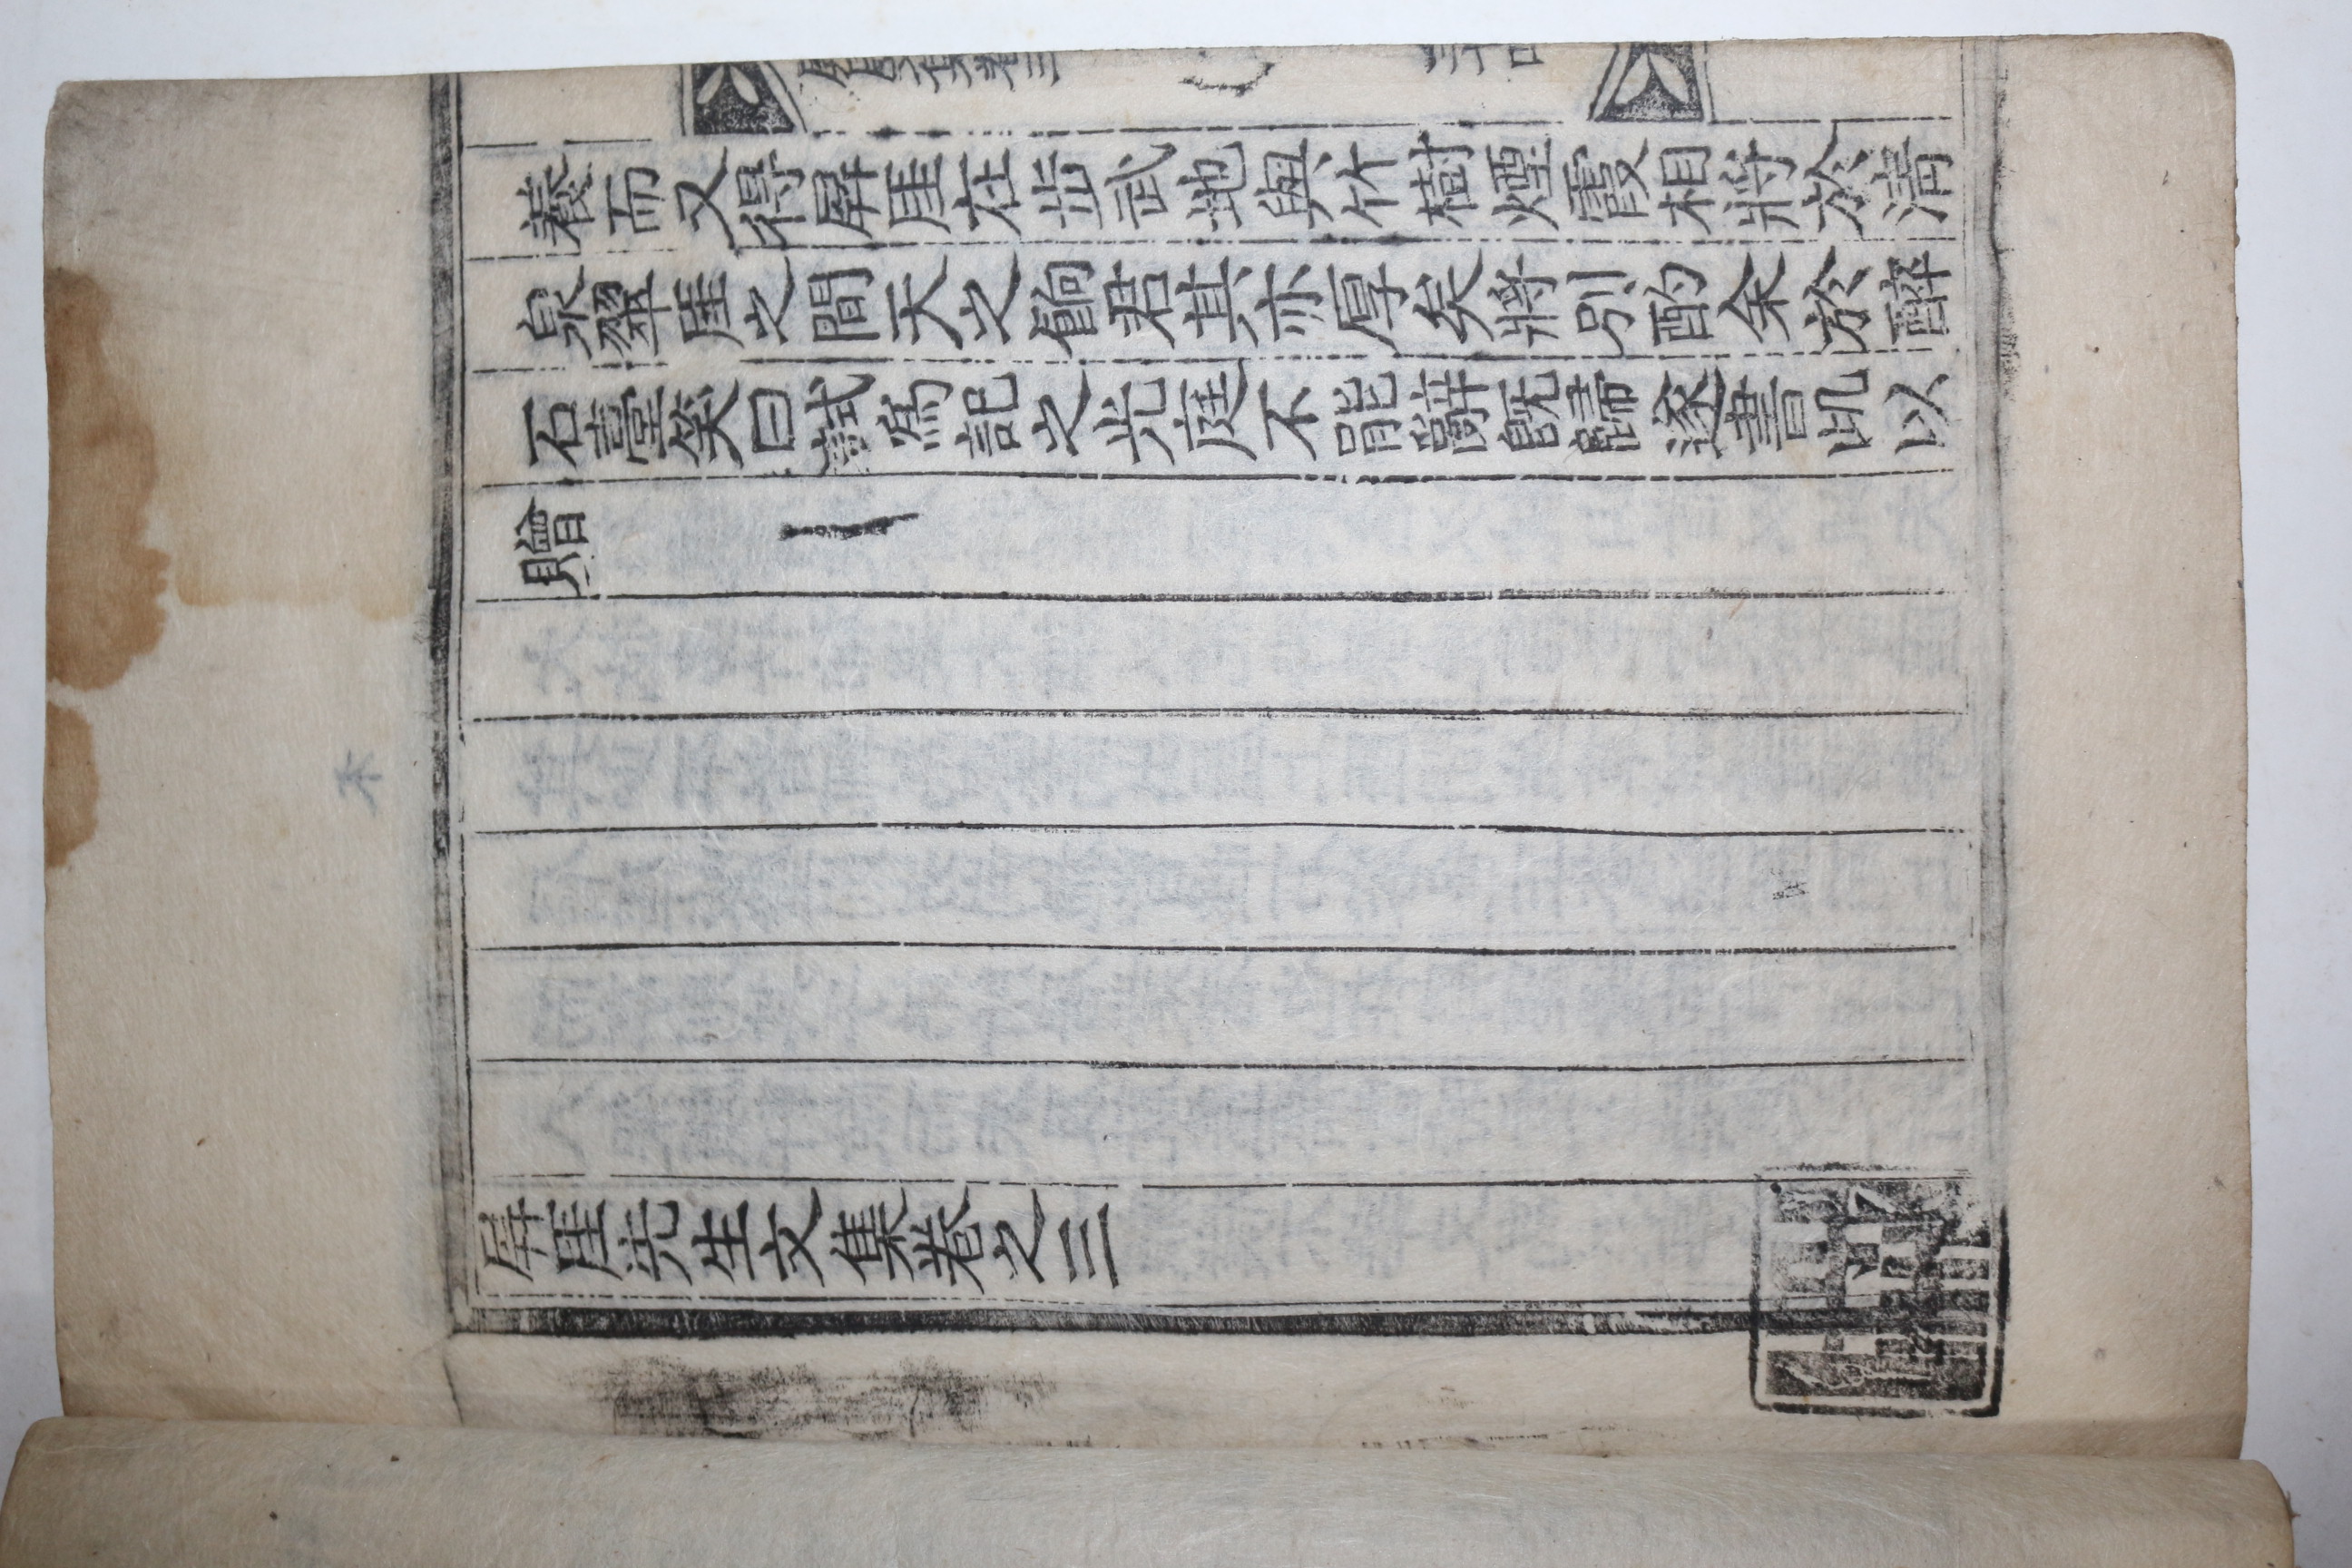 養而又得屛厓在步武地與竹樹煙霞相將於淸
泉翠厓之間天之餉君其亦厚矣將別酌余於醉
石臺笑曰試爲記之光庭不能辭旣歸遂書此以
贈
屛厓先生文集卷之三